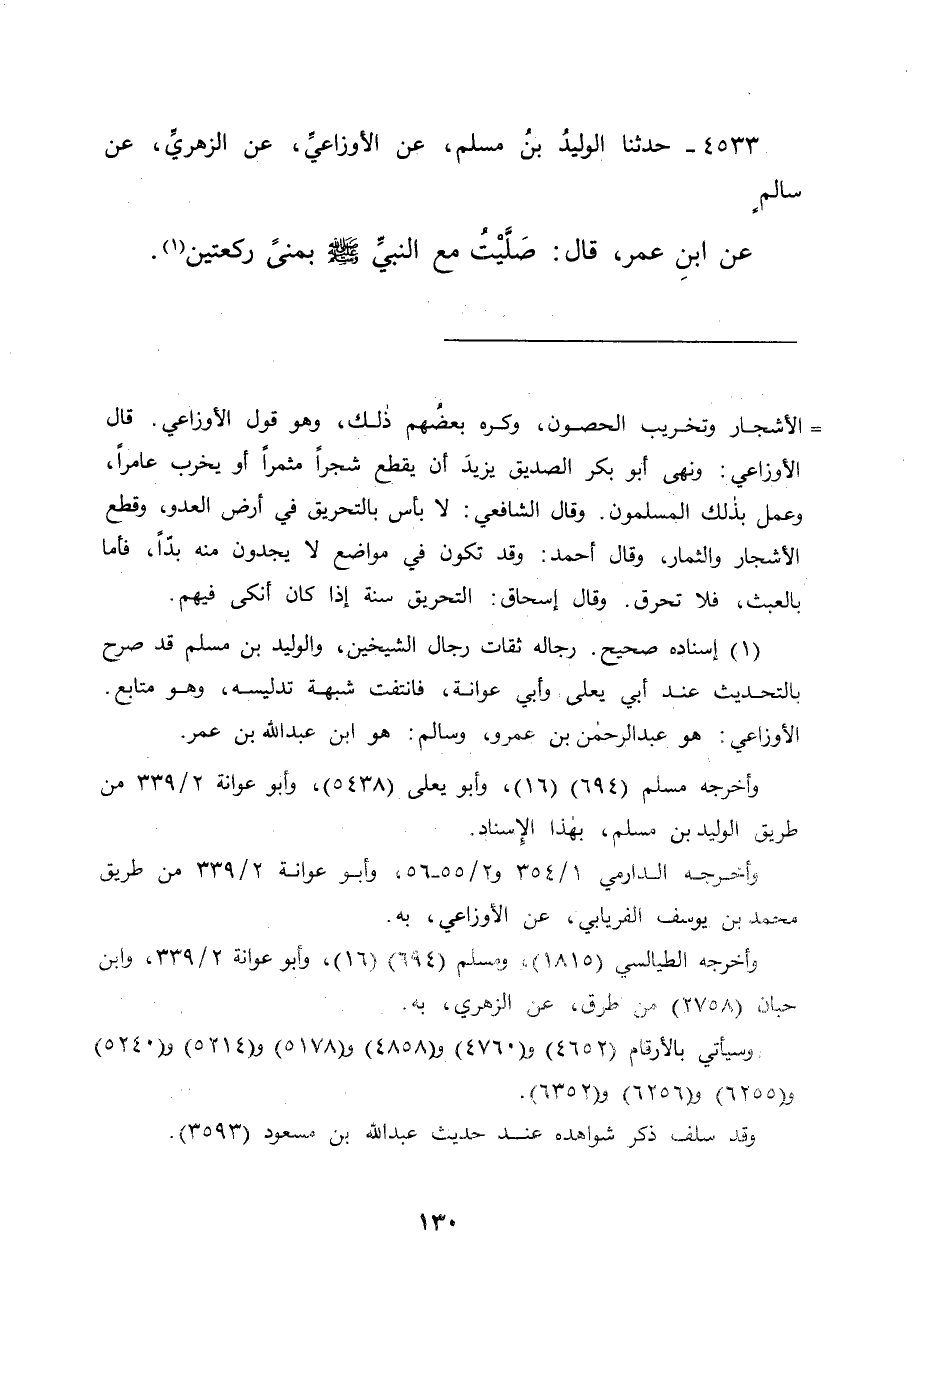 ٤٥٣٣ ـ حدثنا الوليدُ بنُ مسلم، عن الأوزاعيِّ، عن الزهريِّ، عن
سالمٍ
عن ابنِ عمر، قال: صَلَّيْتُ مع النبيِّ ﷺ بمنىً ركعتين(١).
= الأشجار وتخريب الحصون، وكره بعضُهم ذٰلك، وهو قول الأوزاعي. قال
الأوزاعي: ونهى أبو بكر الصديق يزيدَ أن يقطع شجراً مثمراً أو يخرب عامراً،
وعمل بذٰلك المسلمون. وقال الشافعي: لا بأس بالتحريق في أرض العدو، وقطع
الأشجار والثمار، وقال أحمد: وقد تكون في مواضع لا يجدون منه بدّاً، فأما
بالعبث، فلا تحرق. وقال إسحاق: التحريق سنة إذا كان أنكى فيهم.
(١) إسناده صحيح. رجاله ثقات رجال الشيخين، والوليد بن مسلم قد صرح
بالتحديث عند أبي يعلى وأبي عوانة، فانتفت شبهة تدليسه، وهو متابع.
الأوزاعي: هو عبدالرحمٰن بن عمرو، وسالم: هو ابن عبدالله بن عمر.
وأخرجه مسلم (٦٩٤) (١٦)، وأبو يعلى (٥٤٣٨)، وأبو عوانة ٣٣٩/٢ من
طريق الوليد بن مسلم، بهٰذا الإسناد.
وأخرجه الدارمي ٣٥٤/١ و٥٥/٢-٥٦، وأبو عوانة ٣٣٩/٢ من طريق
محمد بن يوسف الفريابي، عن الأوزاعي، به.
وأخرجه الطيالسي (١٨١٥)، ومسلم (٦٩٤) (١٦)، وأبو عوانة ٣٣٩/٢، وابن
حبان (٢٧٥٨) من طرق، عن الزهري، به.
وسيأتي بالأرقام (٤٦٥٢) و(٤٧٦٠) و(٤٨٥٨) و(٥١٧٨) و(٥٢١٤) و(٥٢٤٠)
و(٦٢٥٥) و(٦٢٥٦) و(٦٣٥٢).
وقد سلف ذكر شواهده عند حديث عبدالله بن مسعود (٣٥٩٣).
١٣٠